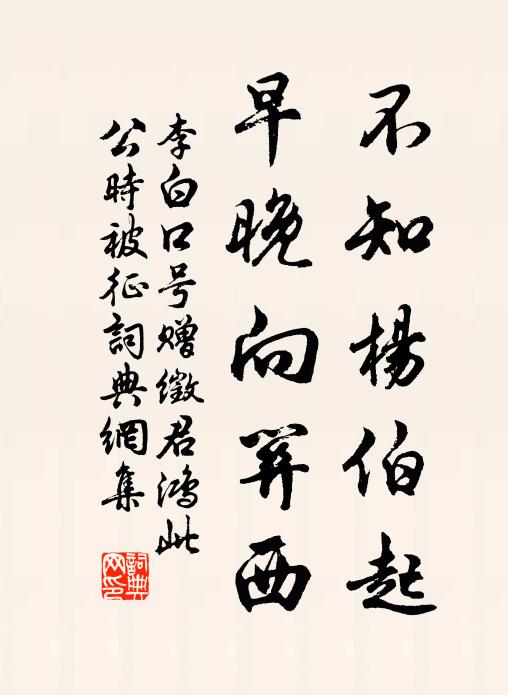 不知楊伯起
早晚向關西
李白口号贈徵君鴻此
公時被征詞典網集
詞典
網印